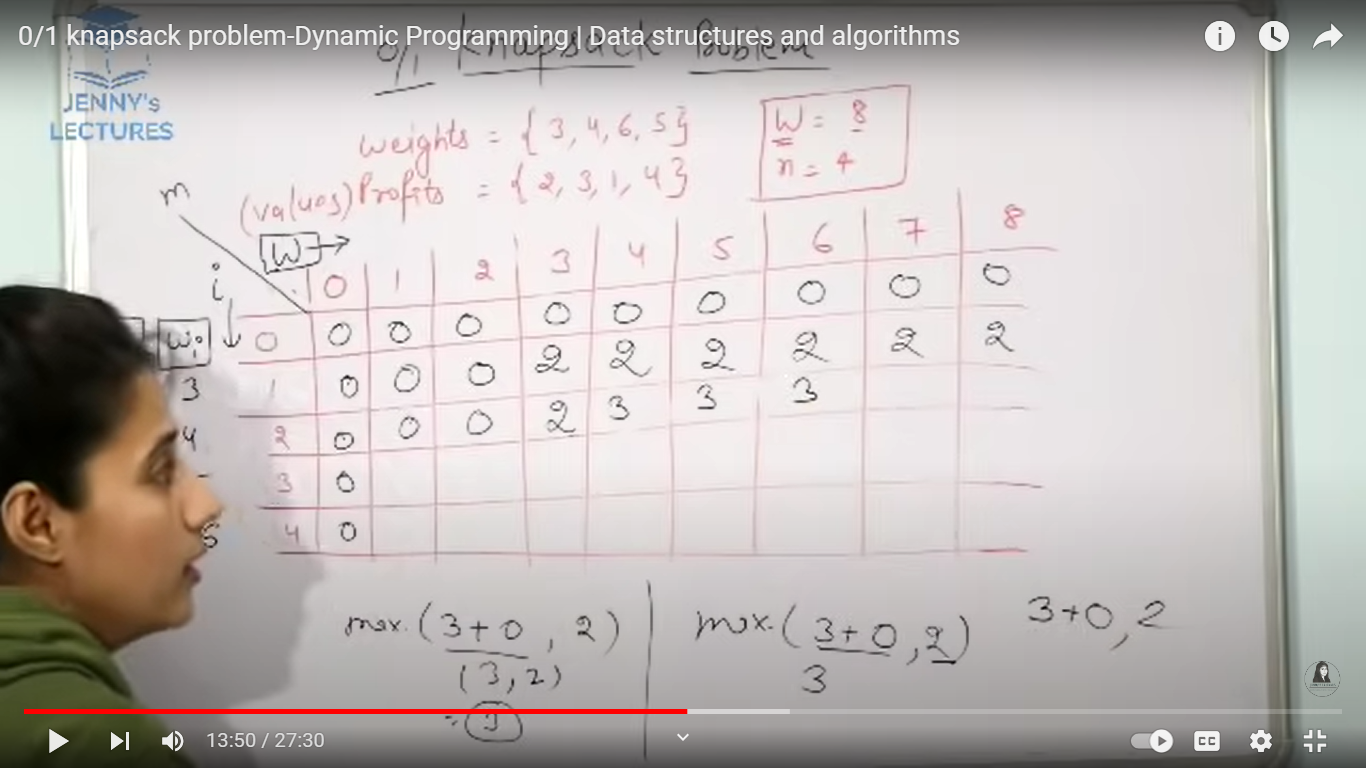 0/1 knapsack problem-Dynamic Programming | Data structures and algorithms
0/1 Knapsack Problem
JENNY's
LECTURES
weights = { 3, 4, 6, 5 }
(values) Profits = { 2, 3, 1, 4 }
W = 8
n = 4
m
W →
i
0 1 2 3 4 5 6 7 8
wi 0 0 0 0 0 0 0 0 0 0
3 1 0 0 0 2 2 2 2 2 2
4 2 0 0 0 2 3 3 3
3 0
5 4 0
max. ( 3+0 , 2 )
(3, 2)
max. ( 3+0 , 2 )
3
3+0, 2
13:50 / 27:30
CC